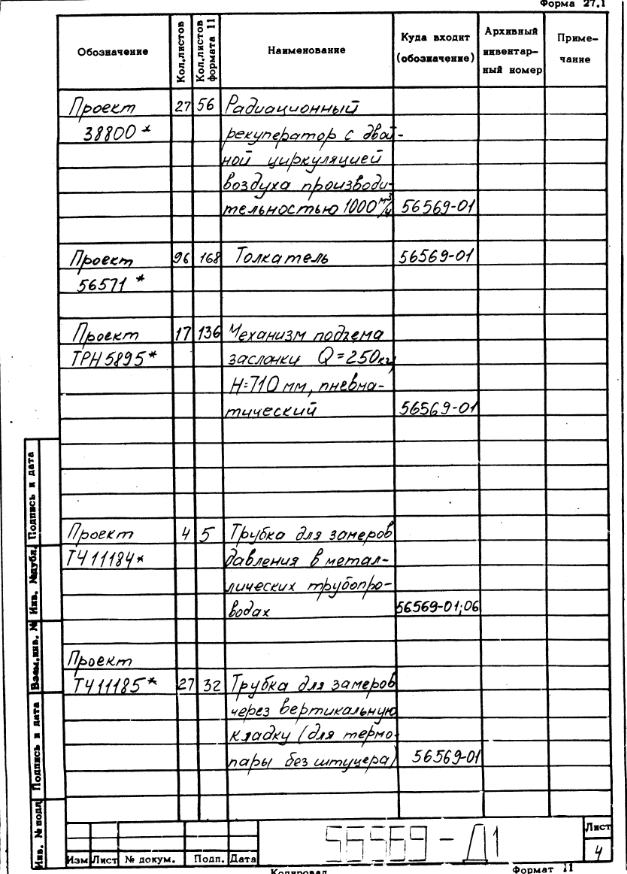 Форма 27.1
Обозначение Кол.листов Кол.листов формата 11 Наименование Куда входит (обозначение) Архивный инвентарный номер Примечание
Проект 27 56 Радиационный
38800 * рекуператор с двой-
ной циркуляцией
воздуха производи-
тельностью 1000 м³/ч 56569-01
Проект 96 168 Толкатель 56569-01
56571 *
Проект 17 136 Механизм подъема
ТРН5895* заслонки Q=250кг,
H=710 мм, пневма-
тический 56569-01
Проект 4 5 Трубка для замеров
ТЧ11184* давления в метал-
лических трубопро-
водах 56569-01;06
Проект
ТЧ11185* 27 32 Трубка для замеров
через вертикальную
кладку (для термо-
пары без штуцера) 56569-01
Инв. № подл Подпись и дата Взам.инв. № Инв. №дубл. Подпись и дата
56569-Д1
Лист
4
Изм Лист № докум. Подп. Дата
Копировал Формат 11